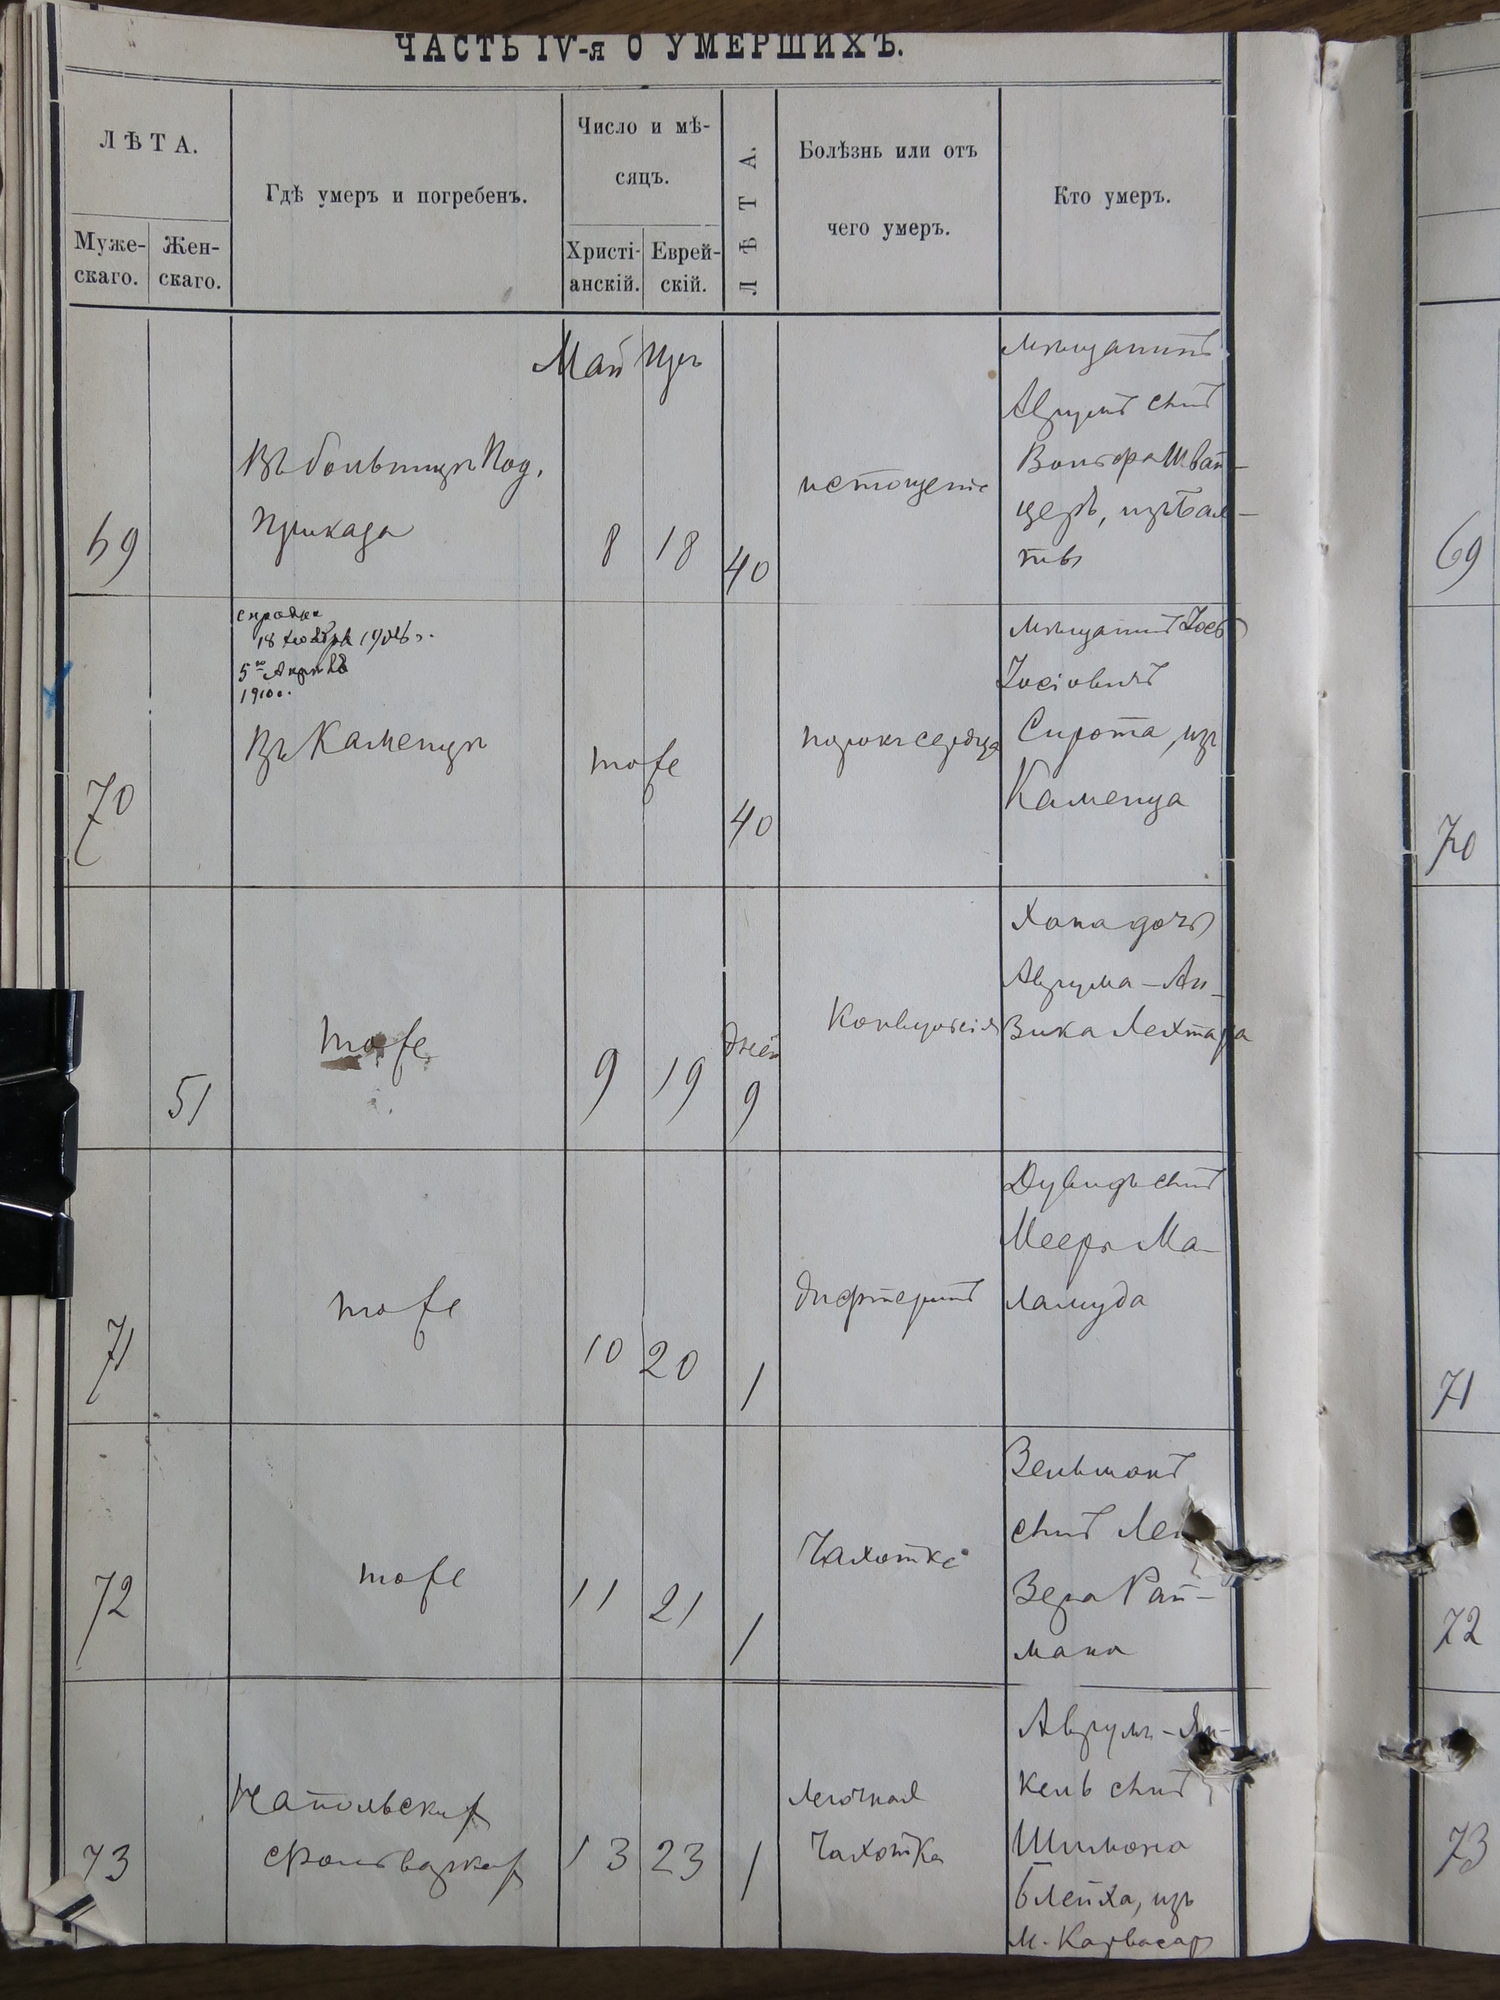 ЧАСТЬ IV-я О УМЕРШИХЪ.
ЛѢТА.
Муже-
скаго.
Жен-
скаго.
Гдѣ умеръ и погребенъ.
Число и мѣ-
сяцъ.
Христі-
анскій.
Еврей-
скій.
ЛѢТА.
Болѣзнь или отъ
чего умеръ.
Кто умеръ.
Май Іяръ
69
Въ больницѣ Под.
Приказа
8
18
40
истощеніе
Мѣщанинъ
Аврумъ сынъ
Вольфа Швай-
церъ, изъ Бал-
ты
69
справка
18 Ноября
5го Апрѣля
1910 г.
70
Въ Каменцѣ
тоже
40
порокъ сердца
Мѣщанинъ Іось
Іосіовичъ
Сирота, изъ
Каменца
70
51
тоже
9
19
дней
9
Конвульсія
Хана дочь
Аврума-Ай-
зика Лехтара
71
тоже
10
20
1
дифтеритъ
Дувидъ сынъ
Меера Ма-
ламуда
71
72
тоже
11
21
1
Чахотка
Зельманъ
сынъ Лей
Зера Рай-
мана
72
73
фольваркахъ
13
23
1
Легочная
Чахотка
Аврумъ-Ян-
кель сынъ
Шимона
Блейха, изъ
м. Карвасар
73